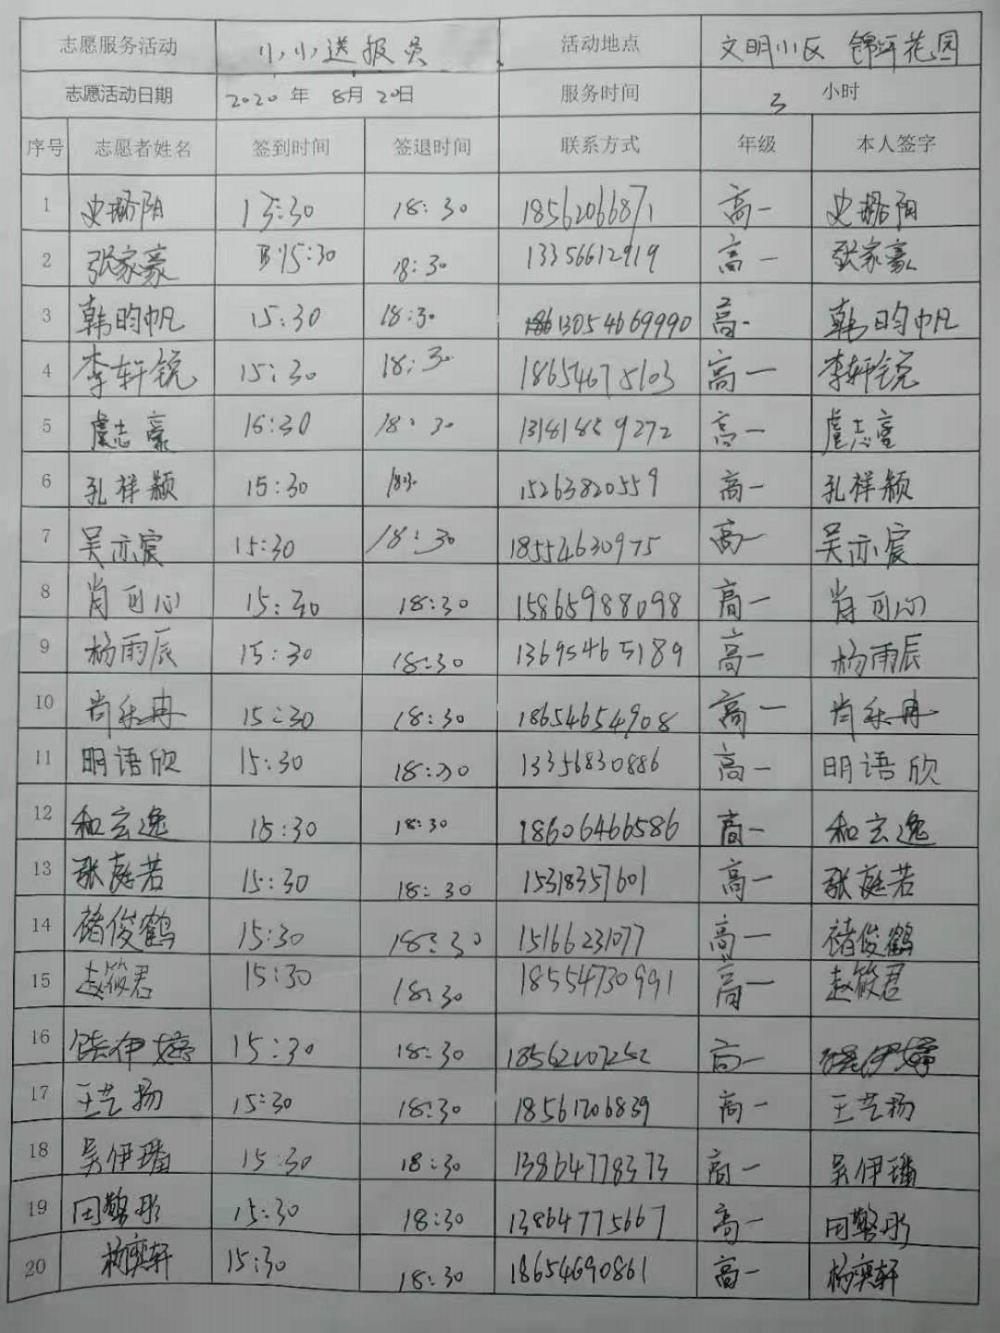 志愿服务活动 小小送报员 活动地点 文明小区 锦坪花园
志愿活动日期 2020年 8月20日 服务时间 3 小时
序号 志愿者姓名 签到时间 签退时间 联系方式 年级 本人签字
1 阳 15:30 18:30 18562066871 高一 阳
2 张家豪 15:30 18:30 13356612919 高一 张家豪
3 韩昀帆 15:30 18:30 13054669990 高一 韩昀帆
4 李轩锐 15:30 18:30 18654675103 高一 李轩锐
5 卢志豪 18:30 13181859272 高一 卢志豪
6 孔祥颖 15:30 1830 15263820559 高一 孔祥颖
7 吴亦宸 15:30 18:30 18554630975 高一 吴亦宸
8 肖可心 15:30 18:30 15865988098 高一 肖可心
9 杨雨辰 15:30 18:30 13695465189 高一 杨雨辰
10 尚乐冉 15:30 18:30 18654654908 高一 尚乐冉
11 明语欣 15:30 18:30 13356830886 高一 明语欣
12 和玄逸 15:30 18:30 18606466586 高一 和玄逸
13 张庭若 15:30 18:30 15318357601 高一 张庭若
14 褚俊鹤 15:30 18:30 15166231077 高一 褚俊鹤
15 赵筱君 15:30 18:30 18554730991 高一 赵筱君
16 伊婷 15:30 18:30 18562007252 高一 伊婷
17 王艺扬 15:30 18:30 18561206839 高一 王艺扬
18 吴伊璠 15:30 18:30 13864778373 高一 吴伊璠
19 田馨彤 15:30 18:30 13864775667 高一 田馨彤
20 杨奕轩 15:30 18:30 18654690861 高一 杨奕轩